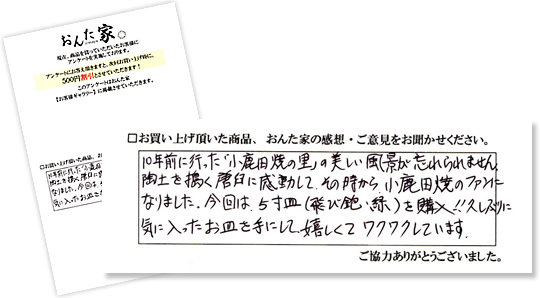 おんた家
現在、商品を買っていただいたお客様に
アンケートを実施しております。
アンケートにお答え頂きますと、次回お買い上げ時に、
500円割引とさせていただきます!
このアンケートはおんた家
【お客様ギャラリー】に掲載させていただきます。
□お買い上げ頂いた商品、おんた
10年前に行った「小鹿田焼の里
陶土を搗く唐臼に感動して
なりました。今回は、5
気に入ったお皿を手に
□お買い上げ頂いた商品、おんた家の感想・ご意見をお聞かせください。
10年前に行った「小鹿田焼の里」の美しい風景が忘れられません。
陶土を搗く唐臼に感動して、その時から、小鹿田焼のファンに
なりました。今回は、5寸皿(飛び鉋・緑)を購入!!久しぶりに
気に入ったお皿を手にして、嬉しくてワクワクしています。
ご協力ありがとうございました。